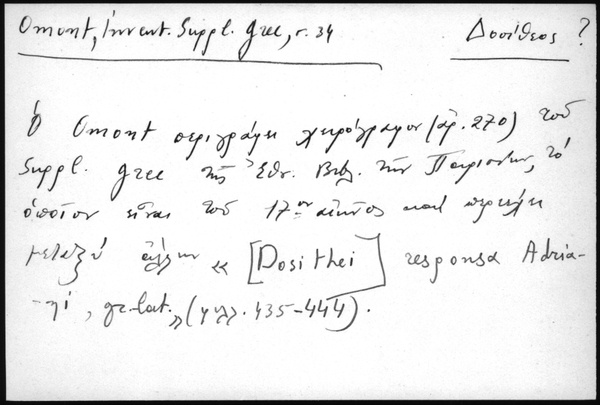 Omont, Invent. Suppl. Grec, σ. 34
Δοσίθεος ?
Ὁ Omont περιγράφει χειρόγραφον (ἀρ. 270) τοῦ
Suppl. grec τῆς Ἐθν. Βιβλ. τῶν Παρισίων, τὸ
ὁποῖον εἶναι τοῦ 17ου αἰῶνος καὶ περιέχει
μεταξὺ ἄλλων « [Dosithei] responsa Adria-
-ni, gr.-lat.» (φύλλ. 435-444).